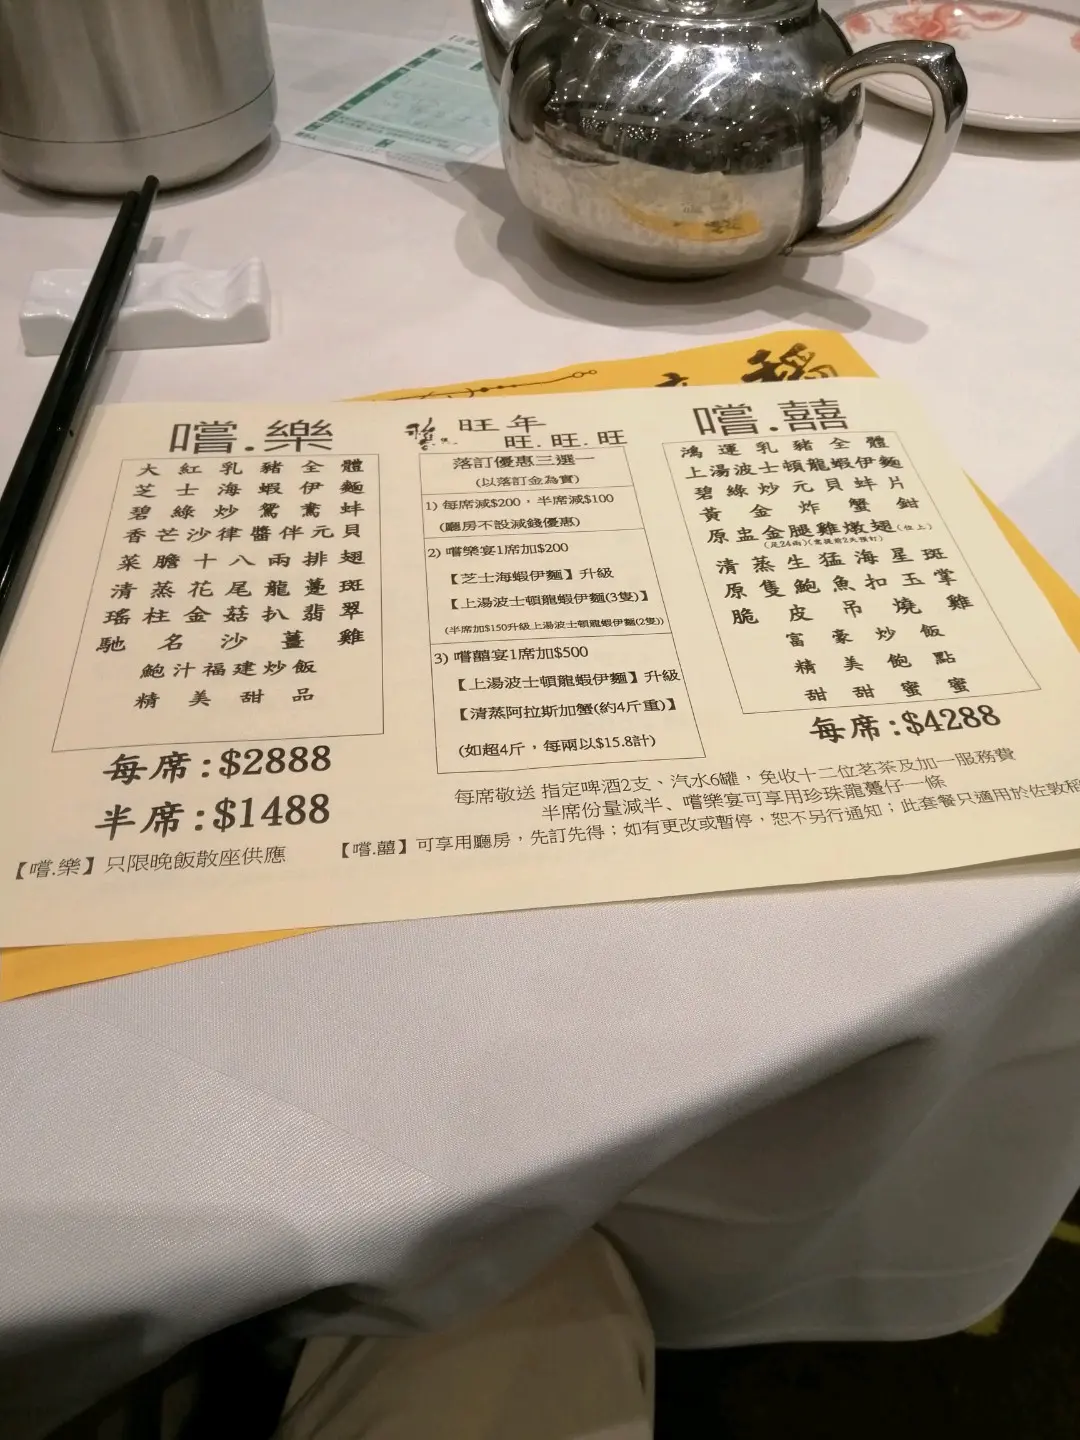 嚐.樂
大紅乳豬全體
芝士海蝦伊麵
碧綠炒鴛鴦蚌
香芒沙律醬伴元貝
菜膽十八兩排翅
清蒸花尾龍躉斑
瑤柱金菇扒翡翠
馳名沙薑雞
鮑汁福建炒飯
精美甜品
每席:$2888
半席:$1488
【嚐.樂】只限晚飯散座供應
旺年
旺.旺.旺
落訂優惠三選一
(以落訂金為實)
1) 每席減$200，半席減$100
(廳房不設減錢優惠)
2) 嚐樂宴1席加$200
【芝士海蝦伊麵】升級
【上湯波士頓龍蝦伊麵(3隻)】
(半席加$150升級上湯波士頓龍蝦伊麵(2隻))
3) 嚐囍宴1席加$500
【上湯波士頓龍蝦伊麵】升級
【清蒸阿拉斯加蟹(約4斤重)】
(如超4斤，每兩以$15.8計)
嚐.囍
鴻運乳豬全體
上湯波士頓龍蝦伊麵
碧綠炒元貝蚌片
黃金炸蟹鉗
原盅金腿雞燉翅(位上)
(足24兩)(需提前2天預訂)
清蒸生猛海星斑
原隻鮑魚扣玉掌
脆皮吊燒雞
富豪炒飯
精美飽點
甜甜蜜蜜
每席:$4288
每席敬送 指定啤酒2支、汽水6罐，免收十二位茗茶及加一服務費
半席份量減半、嚐樂宴可享用珍珠龍躉仔一條
【嚐.囍】可享用廳房，先訂先得；如有更改或暫停，恕不另行通知；此套餐只適用於佐敦稻